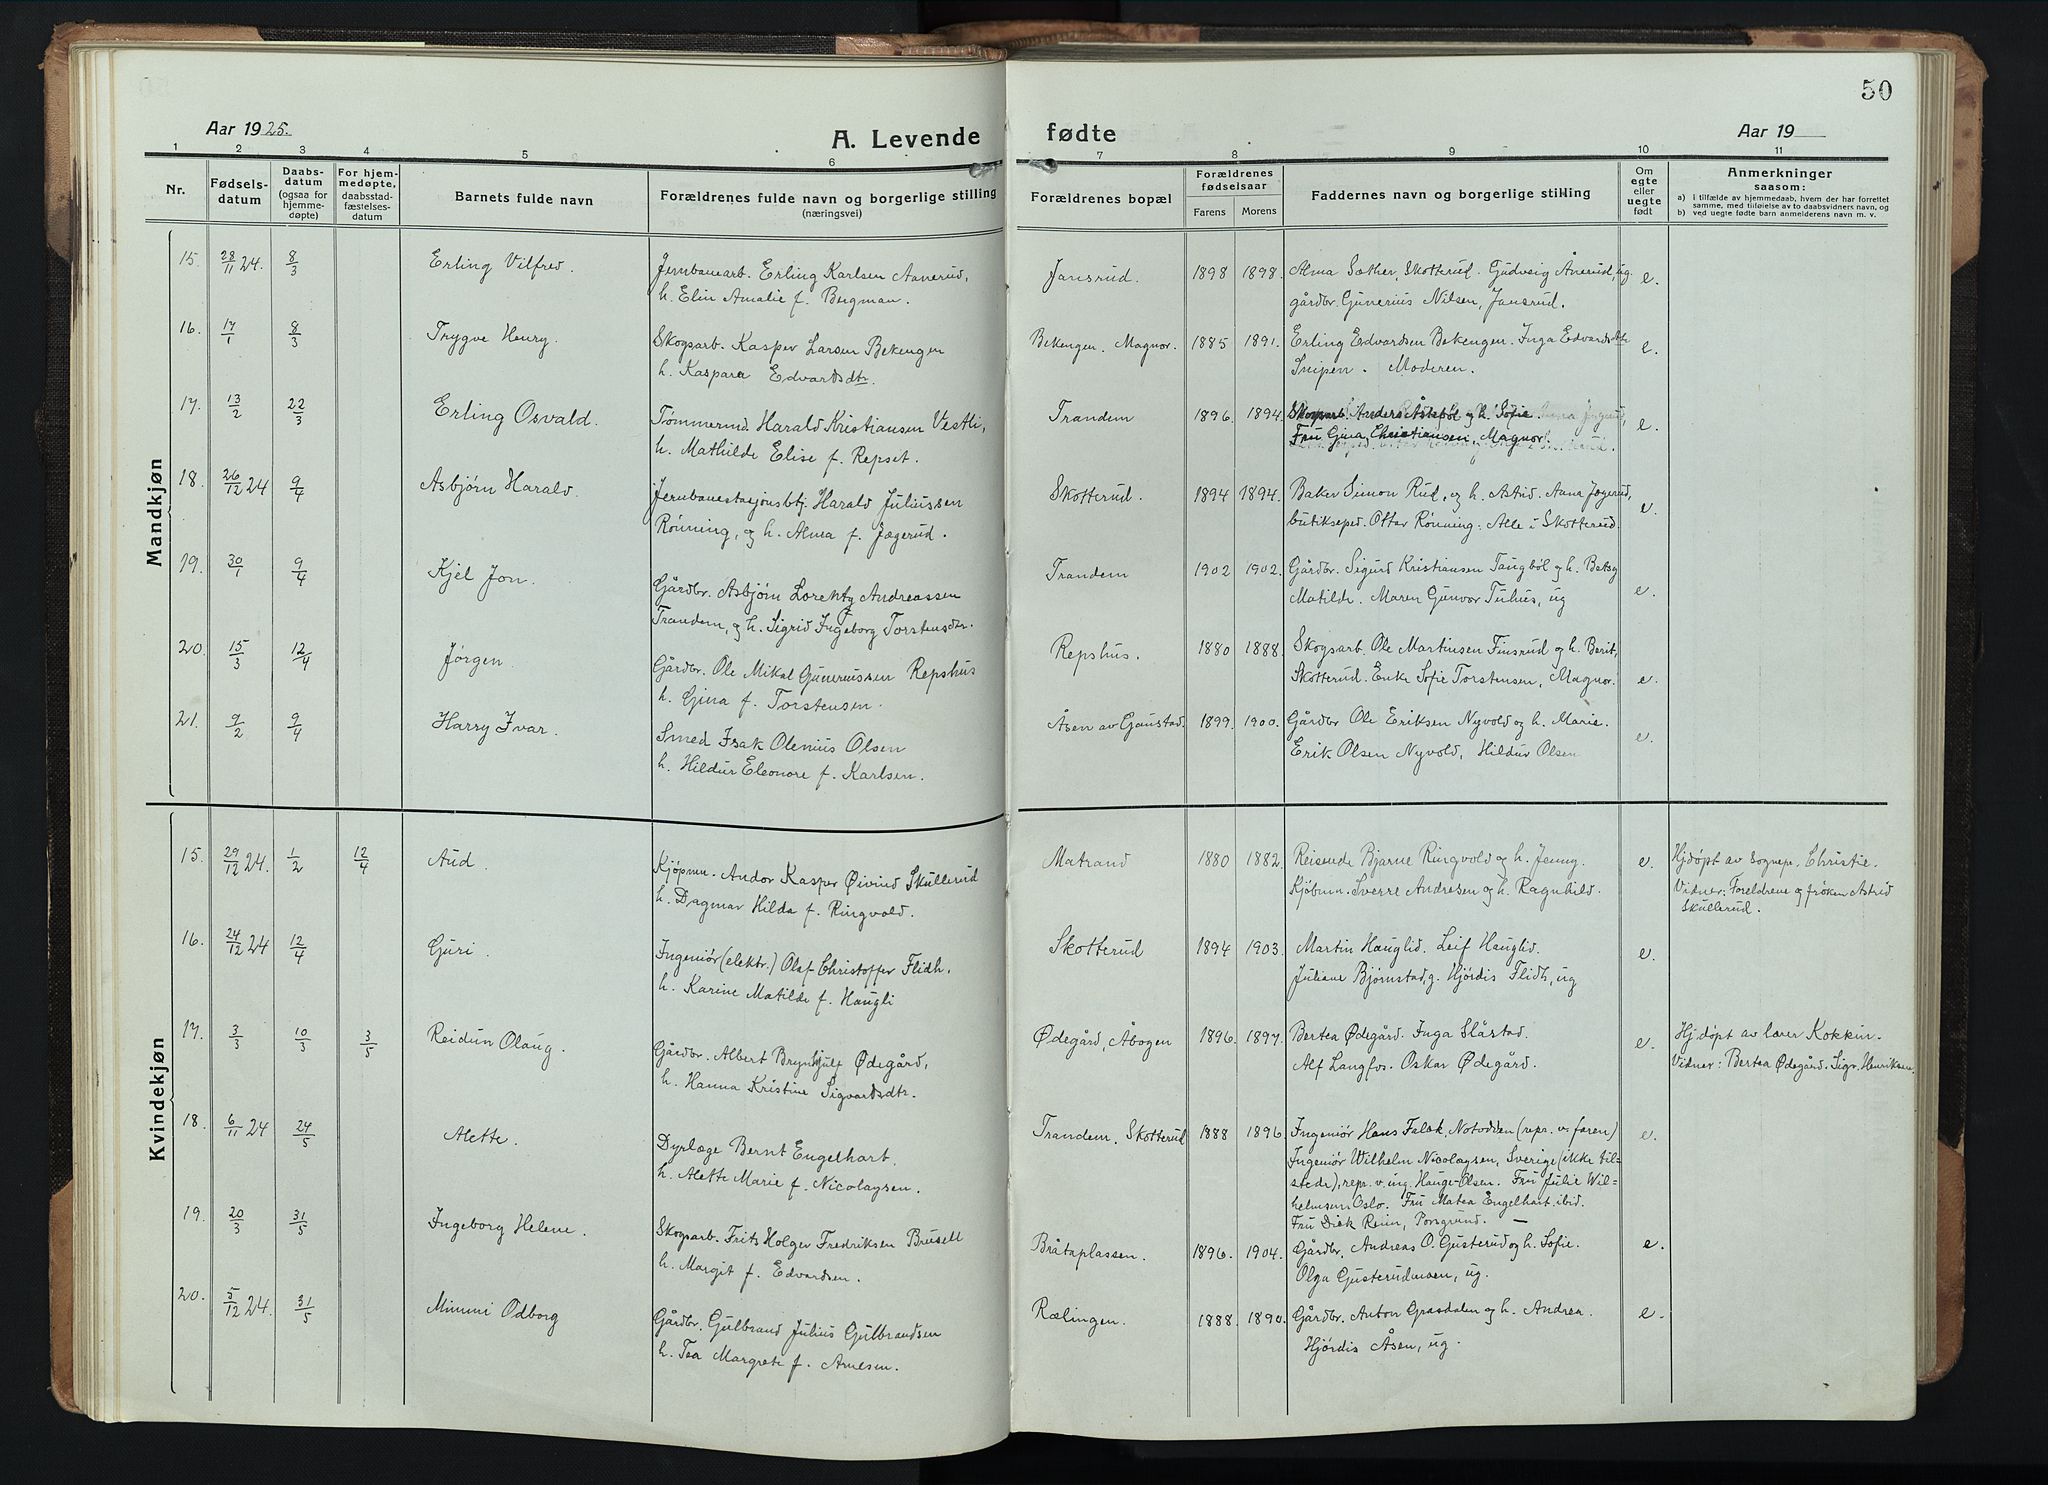 50
Aar 1925. A. Levende fødte Aar 19
1 2 3 4 5 6 7 8 9 10 11
Nr.
Fødselsdatum
Daabsdatum (ogsaa for hjemmedøpte)
For hjemmedøpte, daabsstadfæstelsesdatum
Barnets fulde navn
Forældrenes fulde navn og borgerlige stilling
(næringsvei)
Forældrenes bopæl
Forældrenes fødselsaar
Farens Morens
Faddernes navn og borgerlige stilling
Om egte eller uegte født
Anmerkninger
saasom:
a) i tilfælde av hjemmedaab, hvem der har forrettet samme, med tilføielse av to daabsvidners navn, og
b) ved uegte fødte barn anmelderens navn m. v.
Mandkjøn
15. 28/11 24. 8/3 Erling Vilfred. Jernbanearb. Erling Karlsen Aanerud, Jansrud. 1898 1898. Alma Sæther, Skotterud. Gudveig Ånerud, ug. e.
h. Elin Amalie f. Bergman. gårdbr. Gunerius Nilsen, Jansrud.
16. 17/1 8/3 Trygve Henry. Skogsarb. Kasper Larsen Bekengen Bekengen. Magnor. 1885 1891. Erling Edvardsen Bekengen. Inga Edvardsdtr e.
h. Kaspara Edvardsdtr. Snipen. Moderen.
17. 13/2 22/3 Erling Osvald. Tømmermd. Harald Kristiansen Vestli, Trandem 1896. 1894. Skogsarb. Anders og h. Sofie e.
h. Mathilde Elise f. Repset. Fru Gina Christiansen, Magnor.
18. 26/12 24 9/4 Asbjørn Harald. Jernbanestasjonsbtj. Harald Juliussen Skotterud. 1894 1894. Baker Simon Rud, og h. Astrid. Anna Jægerud, e.
Rønning, og h. Alma f. Jægerud. butikseksp. Ottar Rønning: Alle i Skotterud.
19. 30/1 9/4 Kjel Jon. Gårdbr. Asbjørn Lorentz Andreassen Trandem 1902 1902. Gårdbr. Sigurd Kristiansen Taugbøl og h. Betsy e.
Trandem, og h. Sigrid Ingeborg Torstensdtr. Matilde. Maren Gunvor Tuhus, ug
20. 15/3 12/4 Jørgen. Gårdbr. Ole Mikal Guneriussen Repshus Repshus. 1880 1888. Skogsarb. Ole Martinsen Finsrud og h. Berit, e.
h. Gina f. Torstensen. Skotterud. Enke Sofie Torstensen, Magnor.
21. 9/2 9/4 Harry Ivar. Smed Isak Olenius Olsen Åsen av Gaustad. 1899. 1900. Gårdbr Ole Eriksen Nyvold og h. Marie. e.
h. Hildur Eleonore f. Karlsen. Erik Olsen Nyvold, Hildur Olsen
Kvindekjøn
15. 29/12 24. 1/2 12/4 Aud. Kjøpmn. Andor Kasper Øivind Skullerud Matrand 1880 1882. Reisende Bjarne Ringvold og h. Jenny. e. Hjdøpt av sognepr. Christie.
h. Dagmar Hilda f. Ringvold. Kjøbmn. Sverre Andresen og h. Ragnhild. Vidner: Foreldrene og frøken Astrid
Skullerud.
16. 24/12 24 12/4 Guri. Ingeniør (elektr.) Olaf Christoffer Flidh, Skotterud 1894 1903. Martin Hauglid. Leif Hauglid. e.
h. Karine Matilde f. Haugli Juliane Bjørnstad, g. Hjørdis Flidh, ug
17. 3/3 10/3 3/5 Reidun Olaug. Gårdbr. Albert Brynhjulf Ødegård, Ødegård, Åbogen 1896. 1897. Bertea Ødegård. Inga Slåstad. e. Hjdøpt av lærer Kokkin.
h. Hanna Kristine Sigvardsdtr. Alf Langfos. Oskar Ødegård. Vidner: Bertea Ødegård. Sigv. Henriksen.
18. 6/11 24 24/5 Alette. Dyrlæge Bernt Engelhart. Trandem. Skotterud 1888 1896. Ingeniør Hans Falck, Notodden (repr. v. faren) e.
h. Alette Marie f. Nicolaysen. Ingeniør Wilhelm Nicolaysen, Sverige (ikke til-
stede), repr. v. ing. Hauge-Olsen. Fru Julie Wil-
helmsen Oslo. Fru Matea Engelhart ibid.
Fru Dick Reim, Porsgrund. —
19. 20/3 31/5 Ingeborg Helene. Skogsarb. Frits Holger Fredriksen Brusell Bråtaplassen. 1896. 1904. Gårdbr. Andreas O. Gusterud og h. Sofie. e.
h. Margit f. Edvardsen. Olga Gusterudmoen, ug.
20. 5/12 24. 31/5 Mimmi Odborg Gårdbr. Gulbrand Julius Gulbrandsen Rælingen. 1888. 1890. Gårdbr. Anton Grasdalen og h. Andrea. e.
h. Tea Margrete f. Arnesen. Hjørdis Åsen, ug.